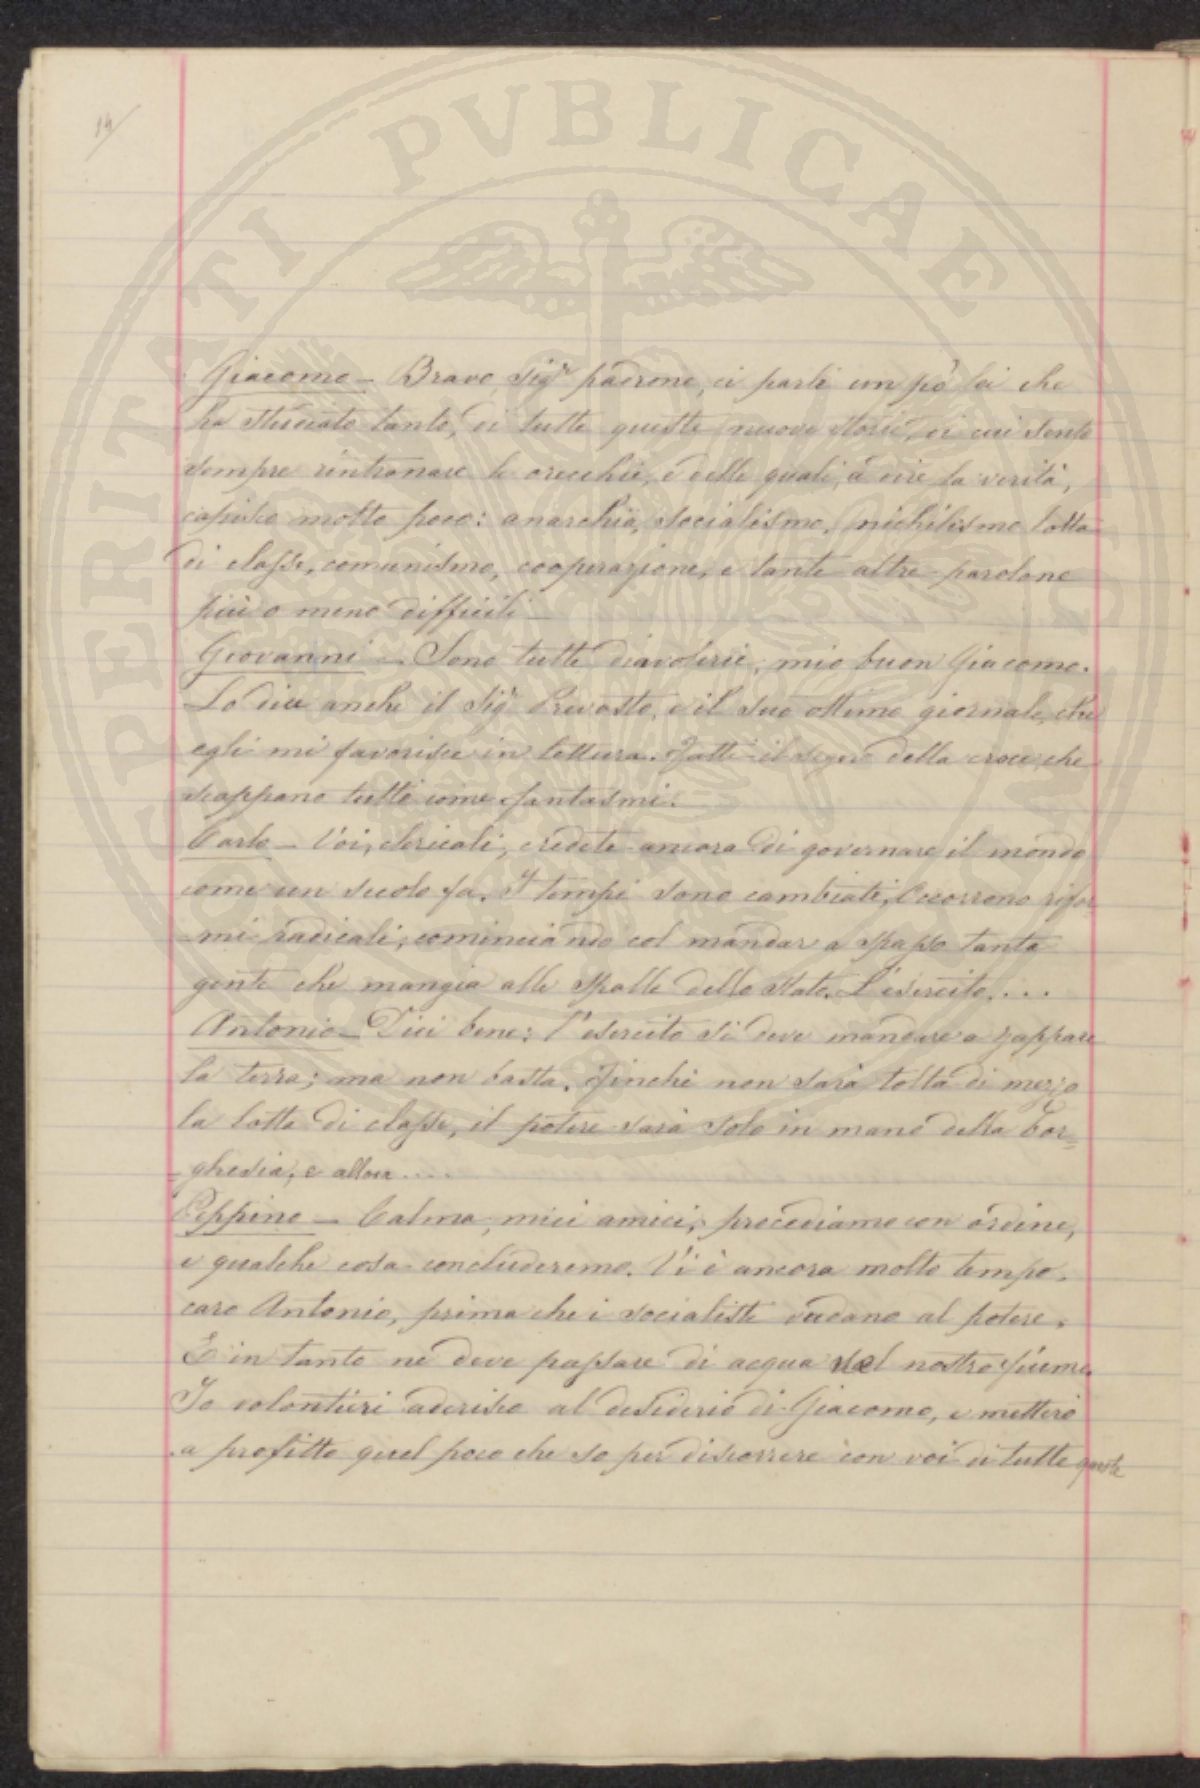 14/
Giacomo – Bravo, Sigr padrone, ci parli un pò lei che
ha studiato tanto, di tutte queste nuove storie, di cui sento
sempre rintronare le orecchie, e delle quali, a dire la verità,
capisco molto poco: anarchia, socialismo, nichilismo lotta
di classe, comunismo, cooperazione, e tante altre parolone
più o meno difficili –
Giovanni – Sono tutte diavolerie, mio buon Giacomo.
Lo dice anche il Sigr Prevosto, e il suo ottimo giornale, che
egli mi favorisce in lettura. Fatti il segno della croce, che
scappano tutti come fantasmi.
Carlo – Voi, clericali, credete ancora di governare il mondo
come un secolo fa. I tempi sono cambiati, Occorrono rifor
-mi radicali, cominciando col mandar a spasso tanta
gente che mangia alle spalle dello stato. L'esercito....
Antonio – Dici bene: l'esercito si deve mandare a zappare
la terra; ma non basta. Finchè non sarà tolta di mezzo
la lotta di classe, il potere sarà solo in mano della bor=
-ghesia, e allora ....
Peppino – Calma, miei amici, procediamo con ordine,
e qualche cosa concluderemo. Vi è ancora molto tempo,
caro Antonio, prima che i socialisti vadano al potere.
E in tanto ne deve passare di acqua nel nostro fiume.
Io volontieri aderisco al desiderio di Giacomo, e metterò
a profitto quel poco che so per discorrere con voi di tutte queste